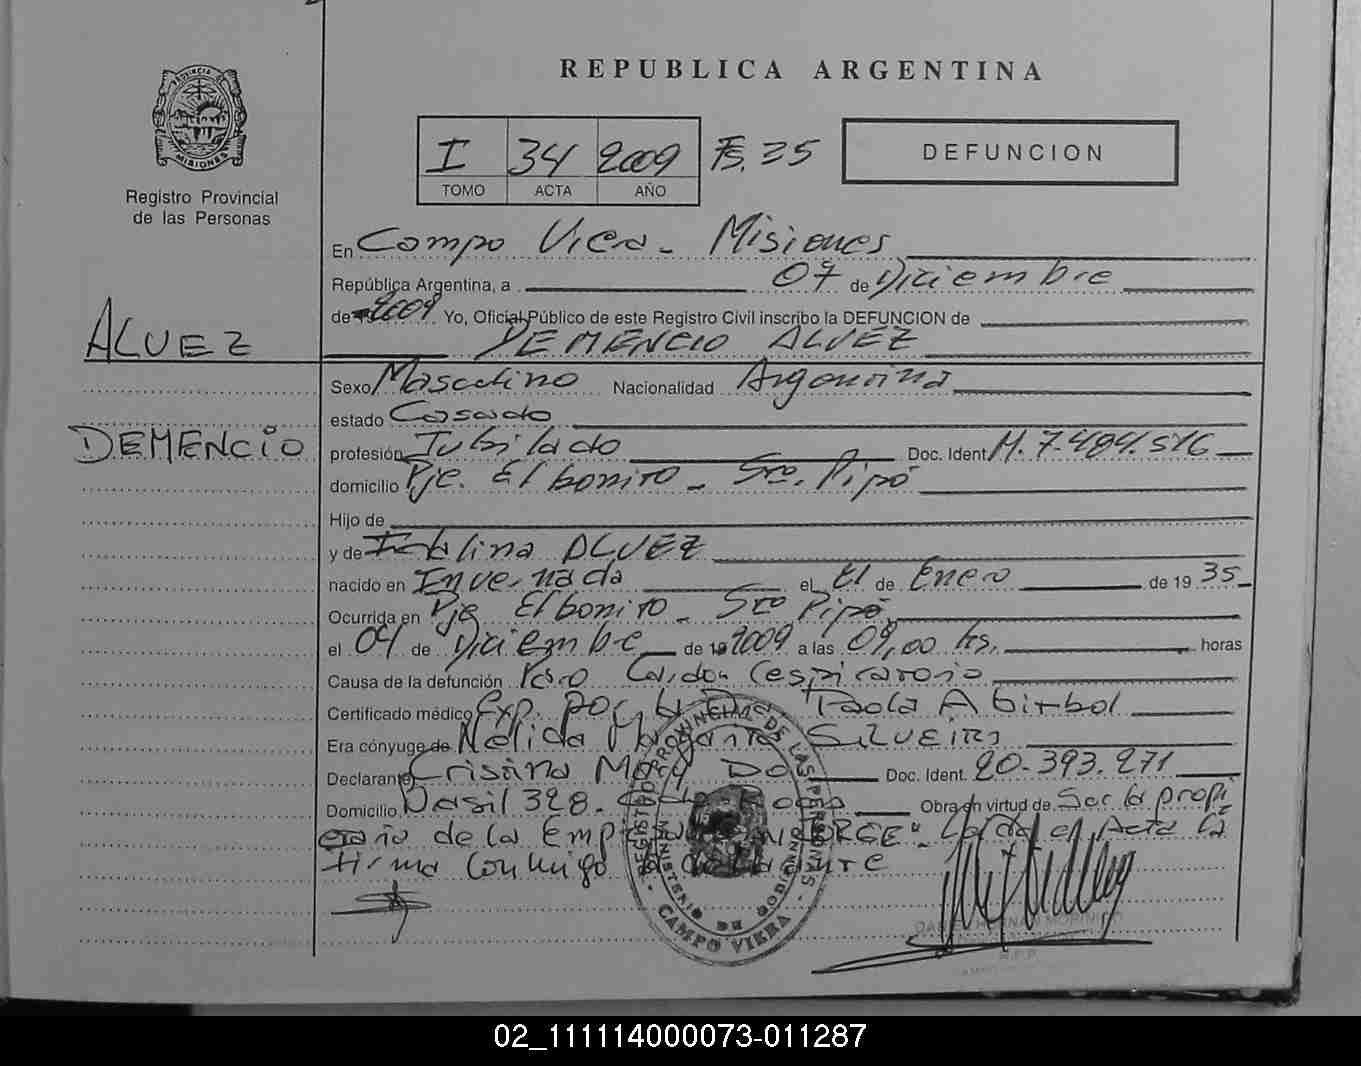 REPUBLICA ARGENTINA
PROVINCIA DE MISIONES
Registro Provincial
de las Personas
I 34 2009 Fs. 35
TOMO ACTA AÑO
DEFUNCION
En Campo Viera - Misiones
República Argentina, a 07 de Diciembre
de 2009 Yo, Oficial Público de este Registro Civil inscribo la DEFUNCION de
ALVEZ
DEMENCIO ALVEZ
Sexo Masculino Nacionalidad Argentina
estado Casado
DEMENCIO
profesión Jubilado Doc. Ident M. 7.484.516
domicilio Pje. El bonito - Sto. Pipó
Hijo de
y de Italina ALVEZ
nacido en Invernada el El de Enero de 19 35
Ocurrida en Pje El bonito - Sto Pipó
el 04 de Diciembre de 19 2009 a las 09,00 hs. horas
Causa de la defunción Paro Cardio Respiratorio
Certificado médico Exp. por la Dra Paola Abirbol
Era cónyuge de Nelida SILVEIRA
Declarante Cristina Doc. Ident. 20.393.271
Domicilio 328. Obra en virtud de Ser la propi
etaria de la Emp JORGE". Leída el Acta la
firma Conmigo
REGISTRO PROVINCIAL DE LAS PERSONAS
MINISTERIO DE GOBIERNO
CAMPO VIERA
02_111114000073-011287